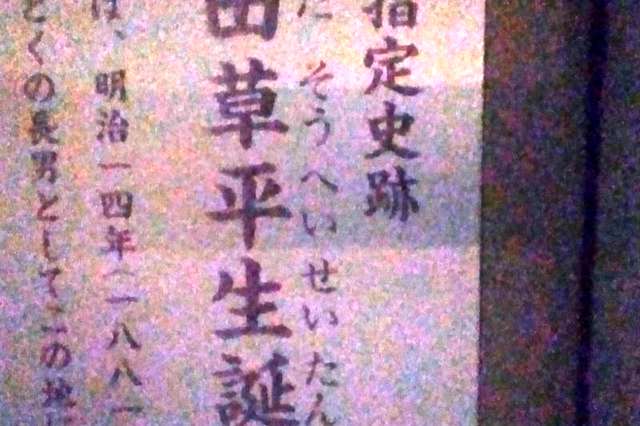 指定史跡
だ そうへいせいたん
田草平生誕
は、明治一四年(一八八一
とくの長男としてこの地に